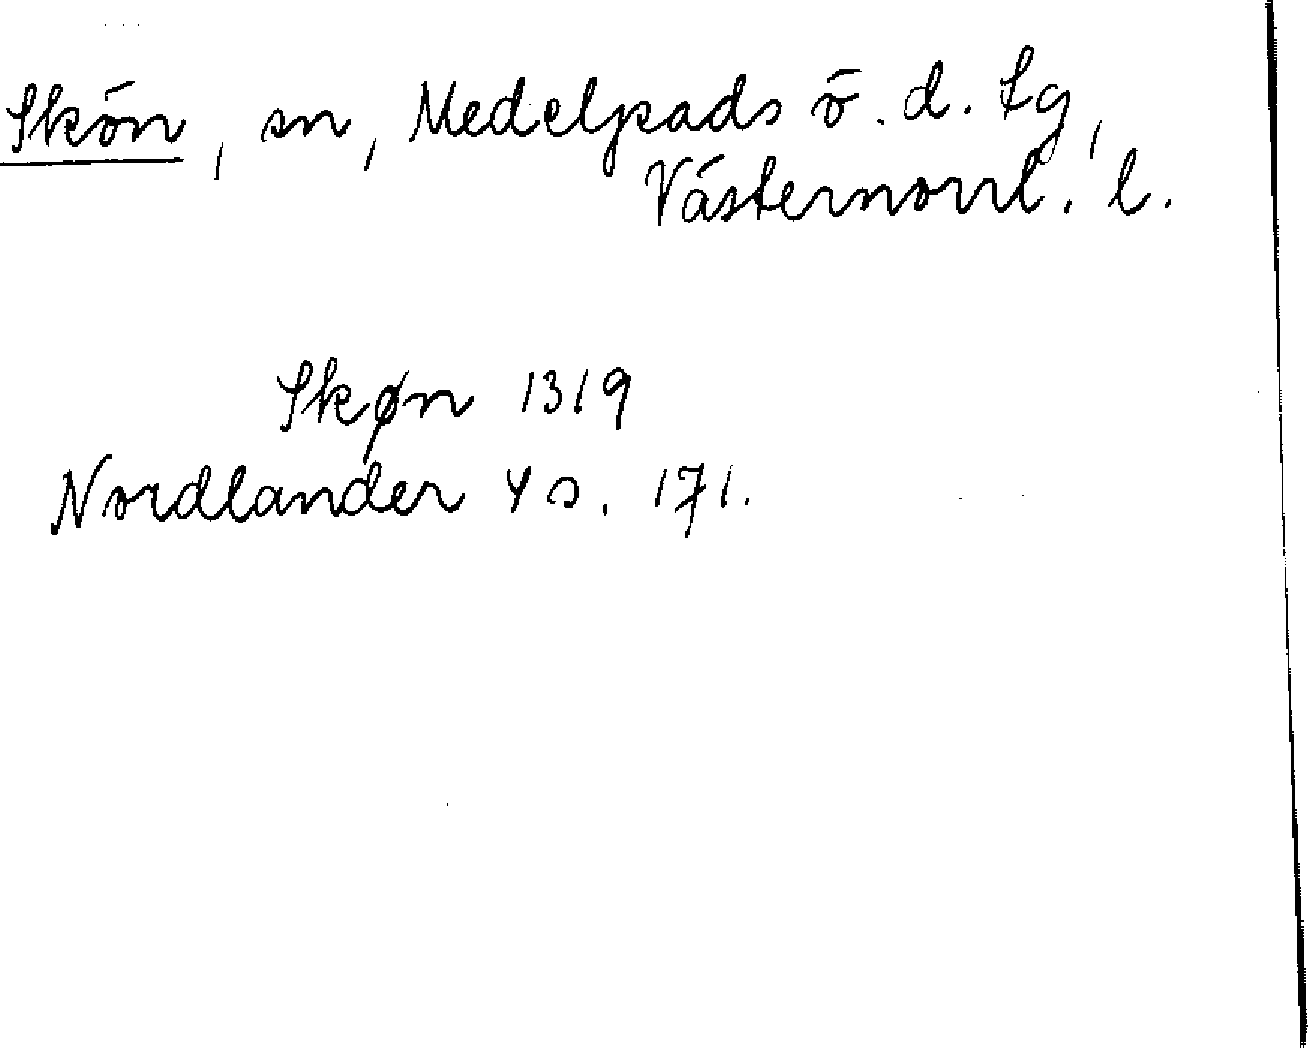 Skön, sn, Medelpads ö. d. tg,
Västernorrl. l.
Skøn 1319
Nordlander 4 s. 171.